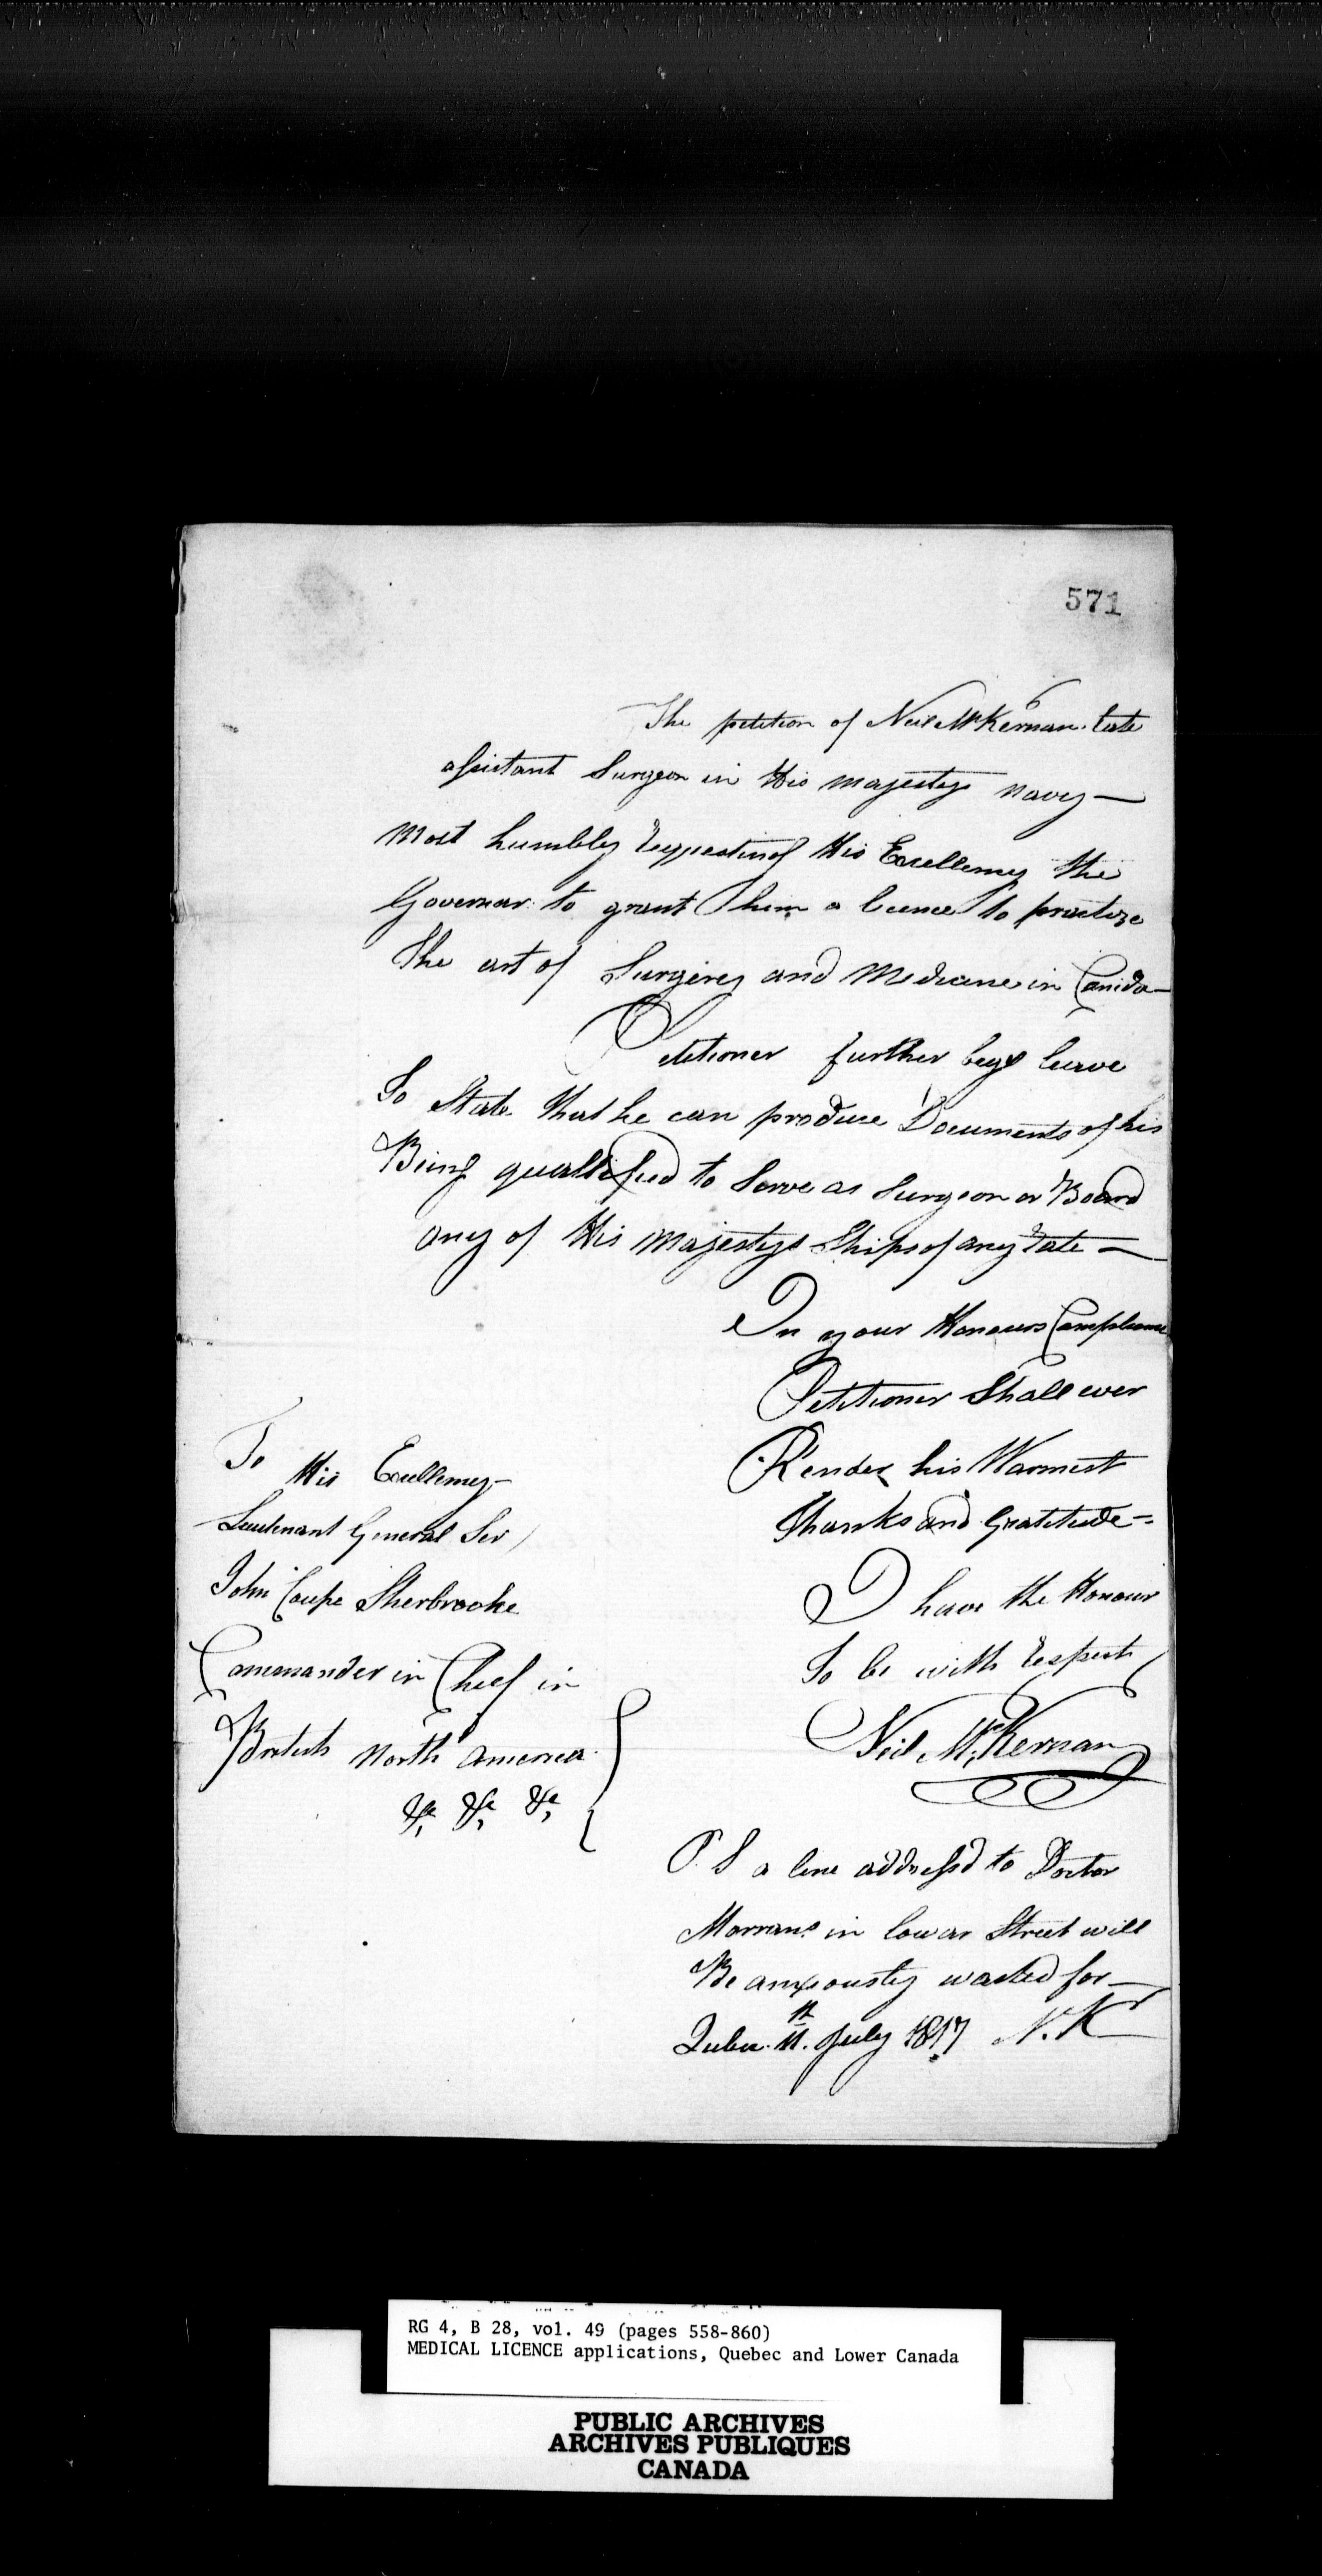 571
The petition of Neil McKernan late
assistant Surgeon in His majestys navy —
most humbly requesting His Excellency the
Governar to grant him a licence to practize
The art of Surgirey and Medicane in Canida —
Petitioner further begs leave
To State that he can produce Documents of his
Being quallified to Serve as Surgeon on Board
any of His Majestys Ships of any rate —
In your Honours Compliance
Petitioner Shall ever
Render his Warmest
Thanks and Gratitude =
I have the Honour
To be with respect
Neil McKernan
To
His Excellency —
Lieutenant General Sir
John Coape Sherbrooke
Commander in Chief in
British North America
&c, &c, &c,
P. S a line address'd to Doctor
in lowar Street will
Be anxiously waited for —
Quebec 11th July 1817 N. K
RG 4, B 28, vol. 49 (pages 558-860)
MEDICAL LICENCE applications, Quebec and Lower Canada
PUBLIC ARCHIVES
ARCHIVES PUBLIQUES
CANADA